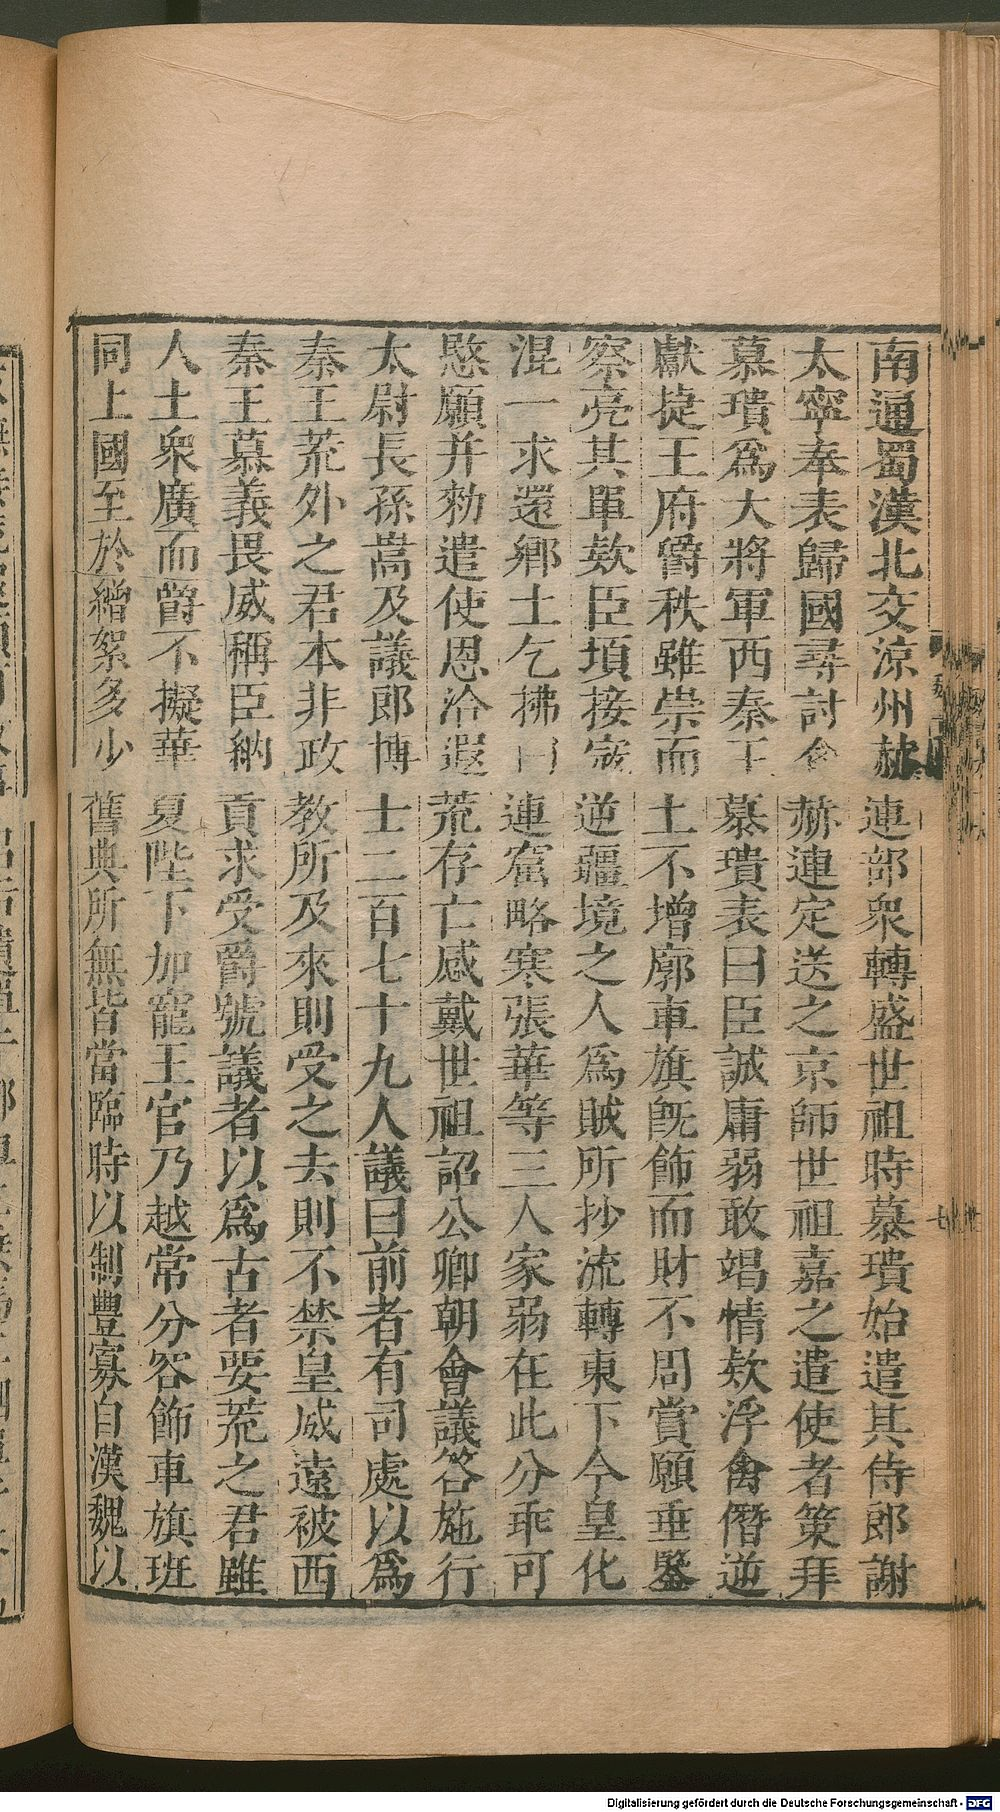 南通蜀漢北交涼州赫連部衆轉盛世祖時慕璝始遣其侍郎謝
太寧奉表歸國尋討禽赫連定送之京師世祖嘉之遣使者策拜
慕璝爲大將軍西秦王慕璝表曰臣誠庸弱敢竭情欵浮禽僭逆
獻捷王府爵秩雖崇而土不增廓車旗旣飾而財不周賞願垂鑒
察亮其單欵臣頃接寇逆疆境之人爲賊所抄流轉東下今皇化
混一求還鄉土乞拂日連窟略寒張華等三人家弱在此分乖可
愍願并勑遣使恩洽遐荒存亡感戴世祖詔公卿朝會議答施行
太尉長孫嵩及議郎博士二百七十九人議曰前者有司處以爲
秦王荒外之君本非政教所及來則受之去則不禁皇威遠被西
秦王慕義畏威稱臣納貢求受爵號議者以爲古者要荒之君雖
人土衆廣而爵不擬華夏陛下加寵王官乃越常分容飾車旗班
同上國至於繒絮多少舊典所無皆當臨時以制豐寡自漢魏以
Digitalisierung gefördert durch die Deutsche Forschungsgemeinschaft - DFG